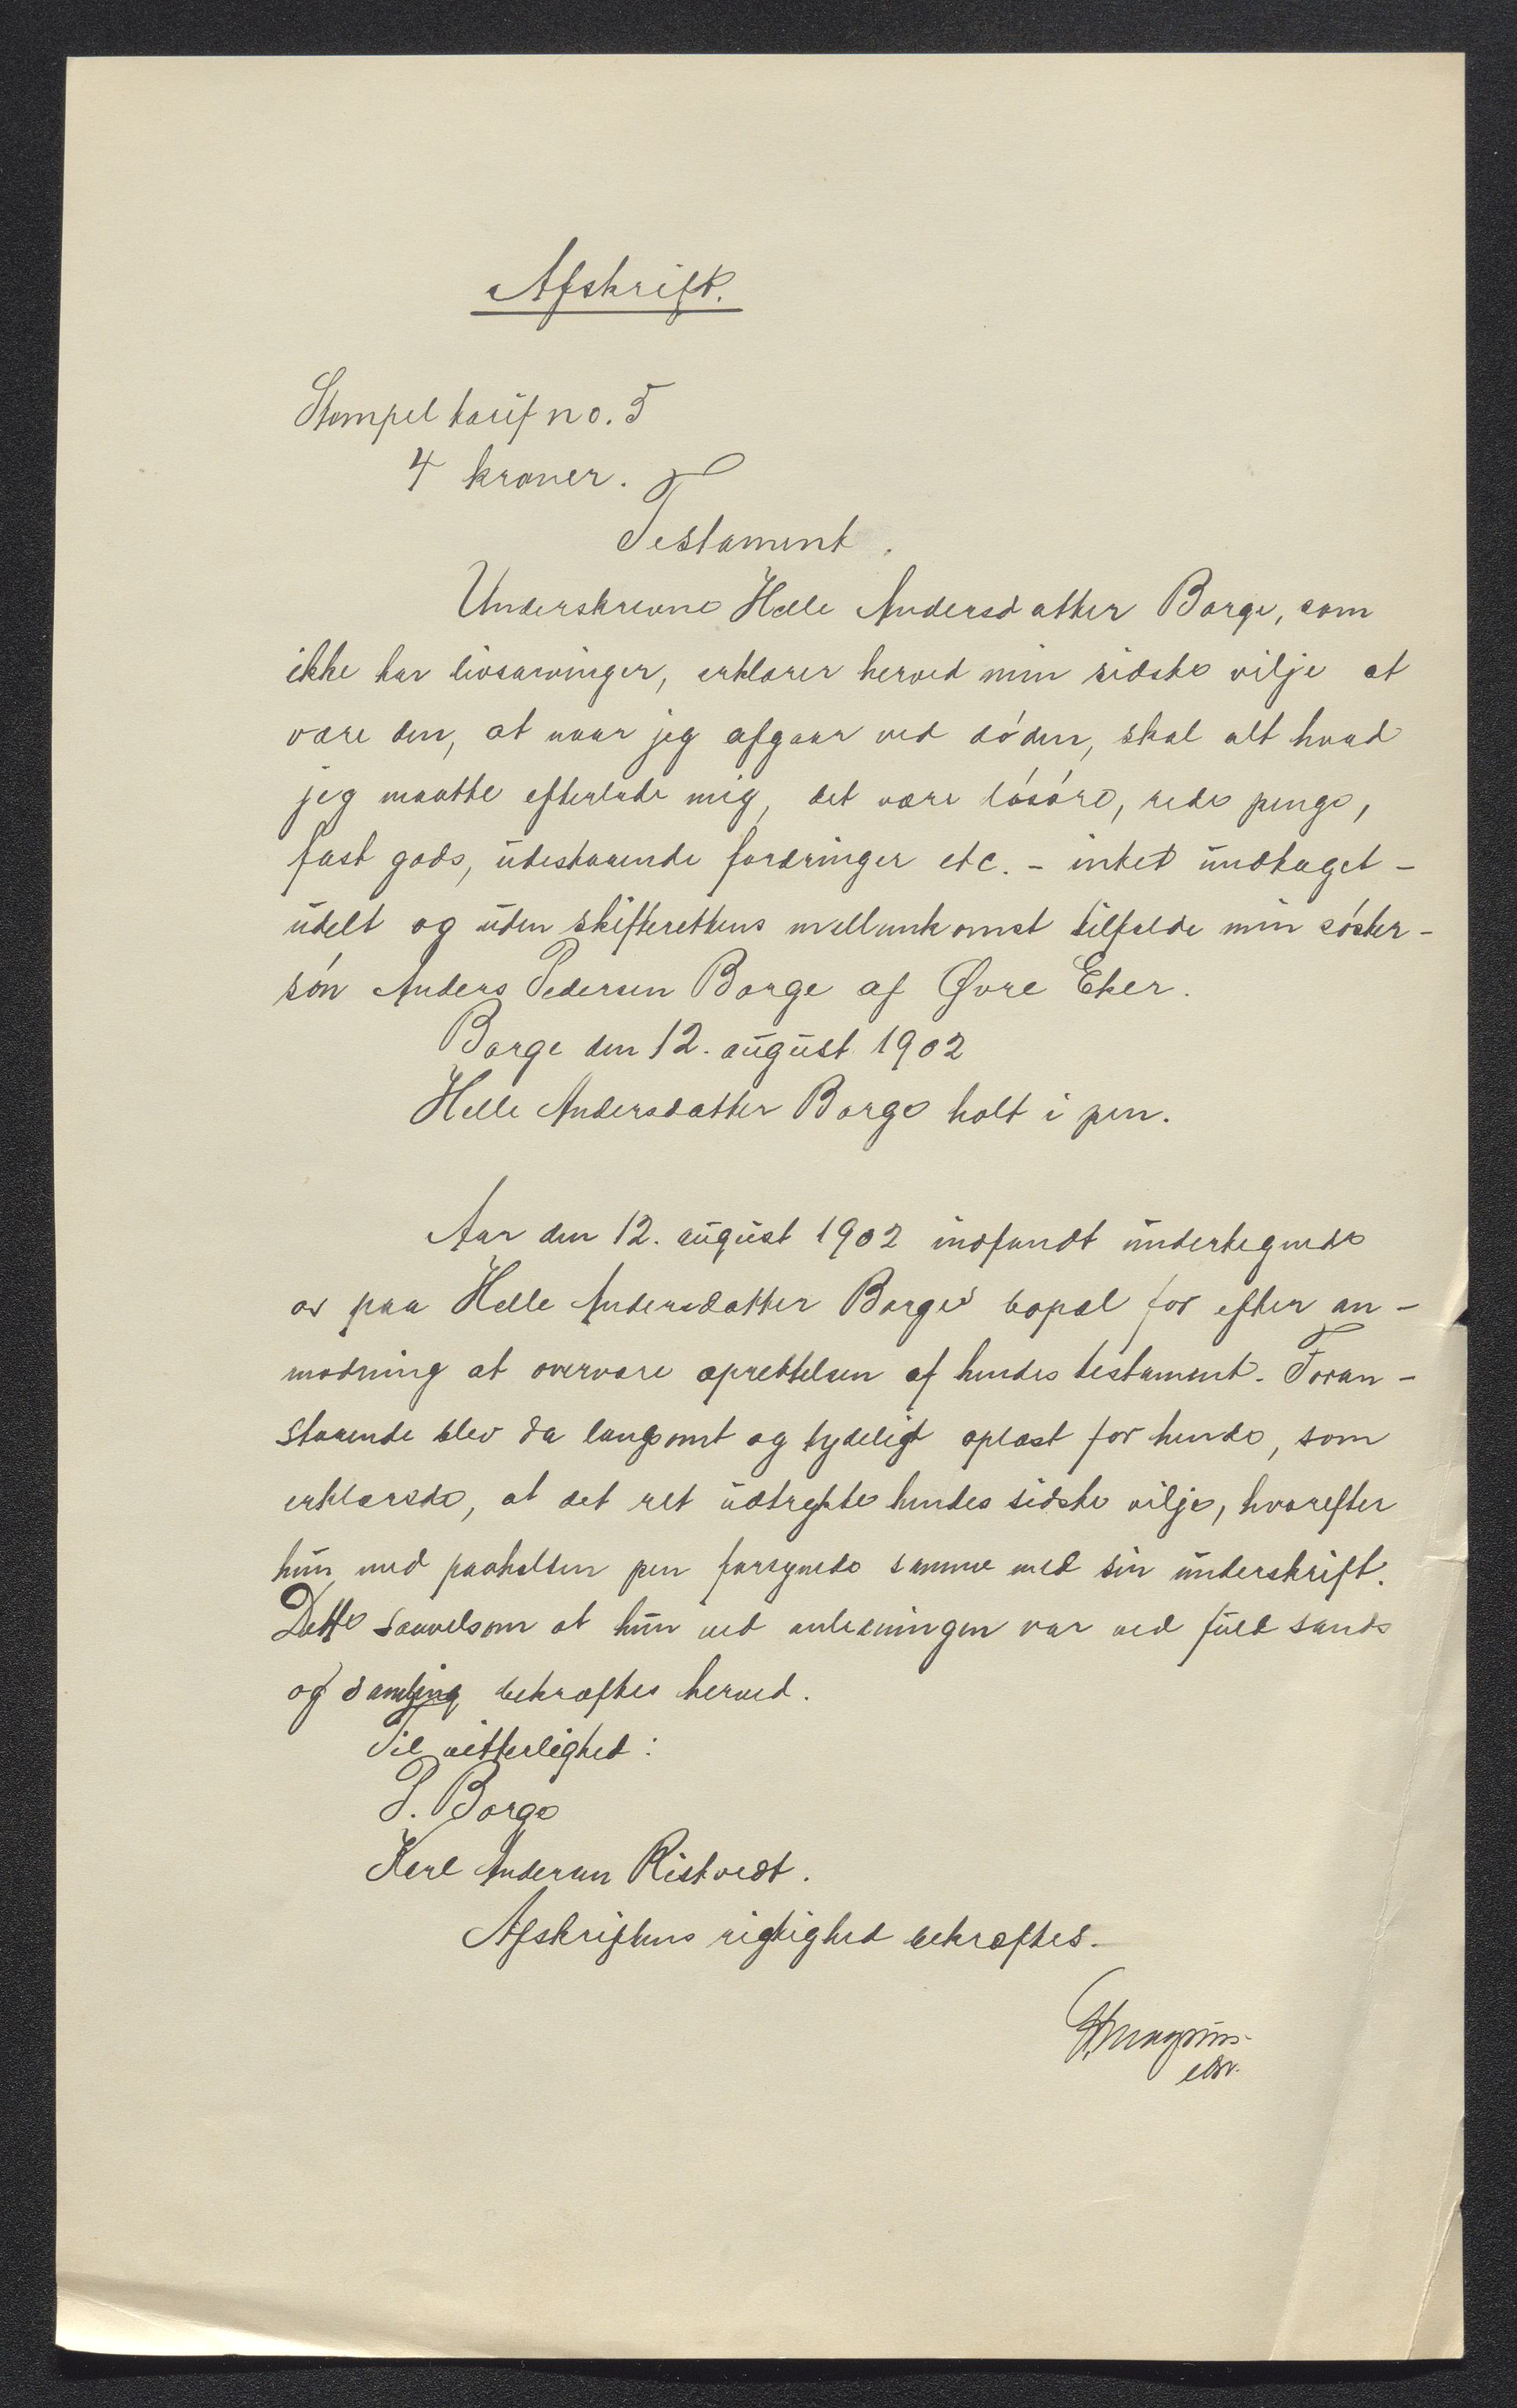 Afskrift.
Stempeltarif no. 5
4 kroner.
Testament.
Underskrevne Helle Andersdatter Borge, som
ikke har livsarvinger, erklærer herved min sidste vilje at
være den, at naar jeg afgaar ved døden, skal alt hvad
jeg maatte efterlade mig, det være løsøre, rede penge,
fast gods, udestaaende fordringer etc. - intet undtaget -
udelt og uden skifterettens mellemkomst tilfalde min søster-
søn Anders Pedersen Borge af Øvre Eker.
Borge den 12. august 1902
Helle Andersdatter Borge holt i pen.
Aar den 12. august 1902 indfandt undertegnede
os paa Helle Andersdatter Borges bopæl for efter an-
modning at overvære oprettelsen af hendes testament. Foran-
staaende blev da langsomt og tydeligt oplæst for hende, som
erklærede, at det ret udtrykte hendes sidste vilje, hvorefter
hun med paaholden pen forsynede samme med sin underskrift.
Dette saavelsom at hun ved anledningen var ved fuld sands
og samling bekræftes herved.
Til vitterlighed:
P. Borge
Karl Andersen Ristvedt.
Afskriftens rigtighed bekræftes.